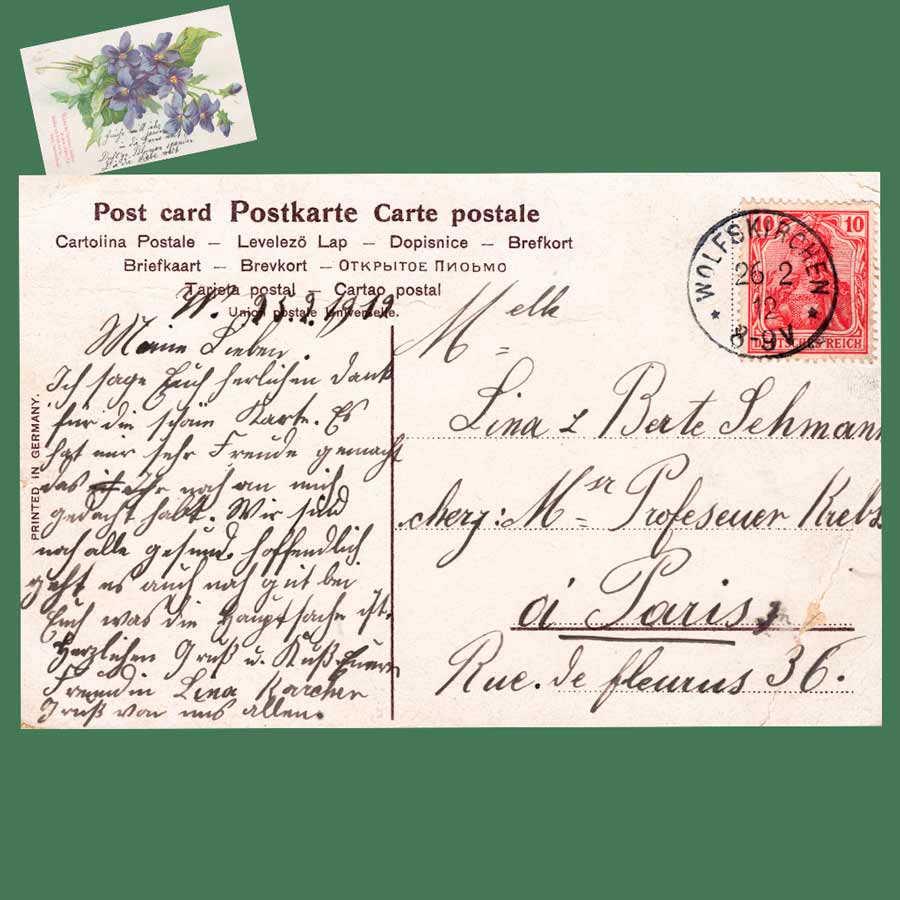 Post card Postkarte Carte postale
Cartolina Postale – Levelező Lap – Dopisnice – Brefkort
Briefkaart – Brevkort – Открытое Письмо
Tarjeta postal – Cartao postal
Union postale universelle.
PRINTED IN GERMANY.
WOLFSKIRCHEN
26 2
12
8-9V
10 10
DEUTSCHES REICH
W. 25.2.1912
Meine Lieben.
Ich sage Euch herlichen Dank
für die schöne Karte. Es
hat mir sehr Freude gemacht
das Ihr noch an mich
gedacht habt. Wir sind
noch alle gesund. hoffendlich
geht es auch noch gut bei
Euch was die Hauptsache ist.
Herzlichen Gruß u. Kuß. Eure
Freundin Lina Karcher
Gruß von uns allen.
Melle
Lina & Berte Sehmann
cherz: Msr Profeseuer Krebs
á Paris
Rue. de fleurus 36.